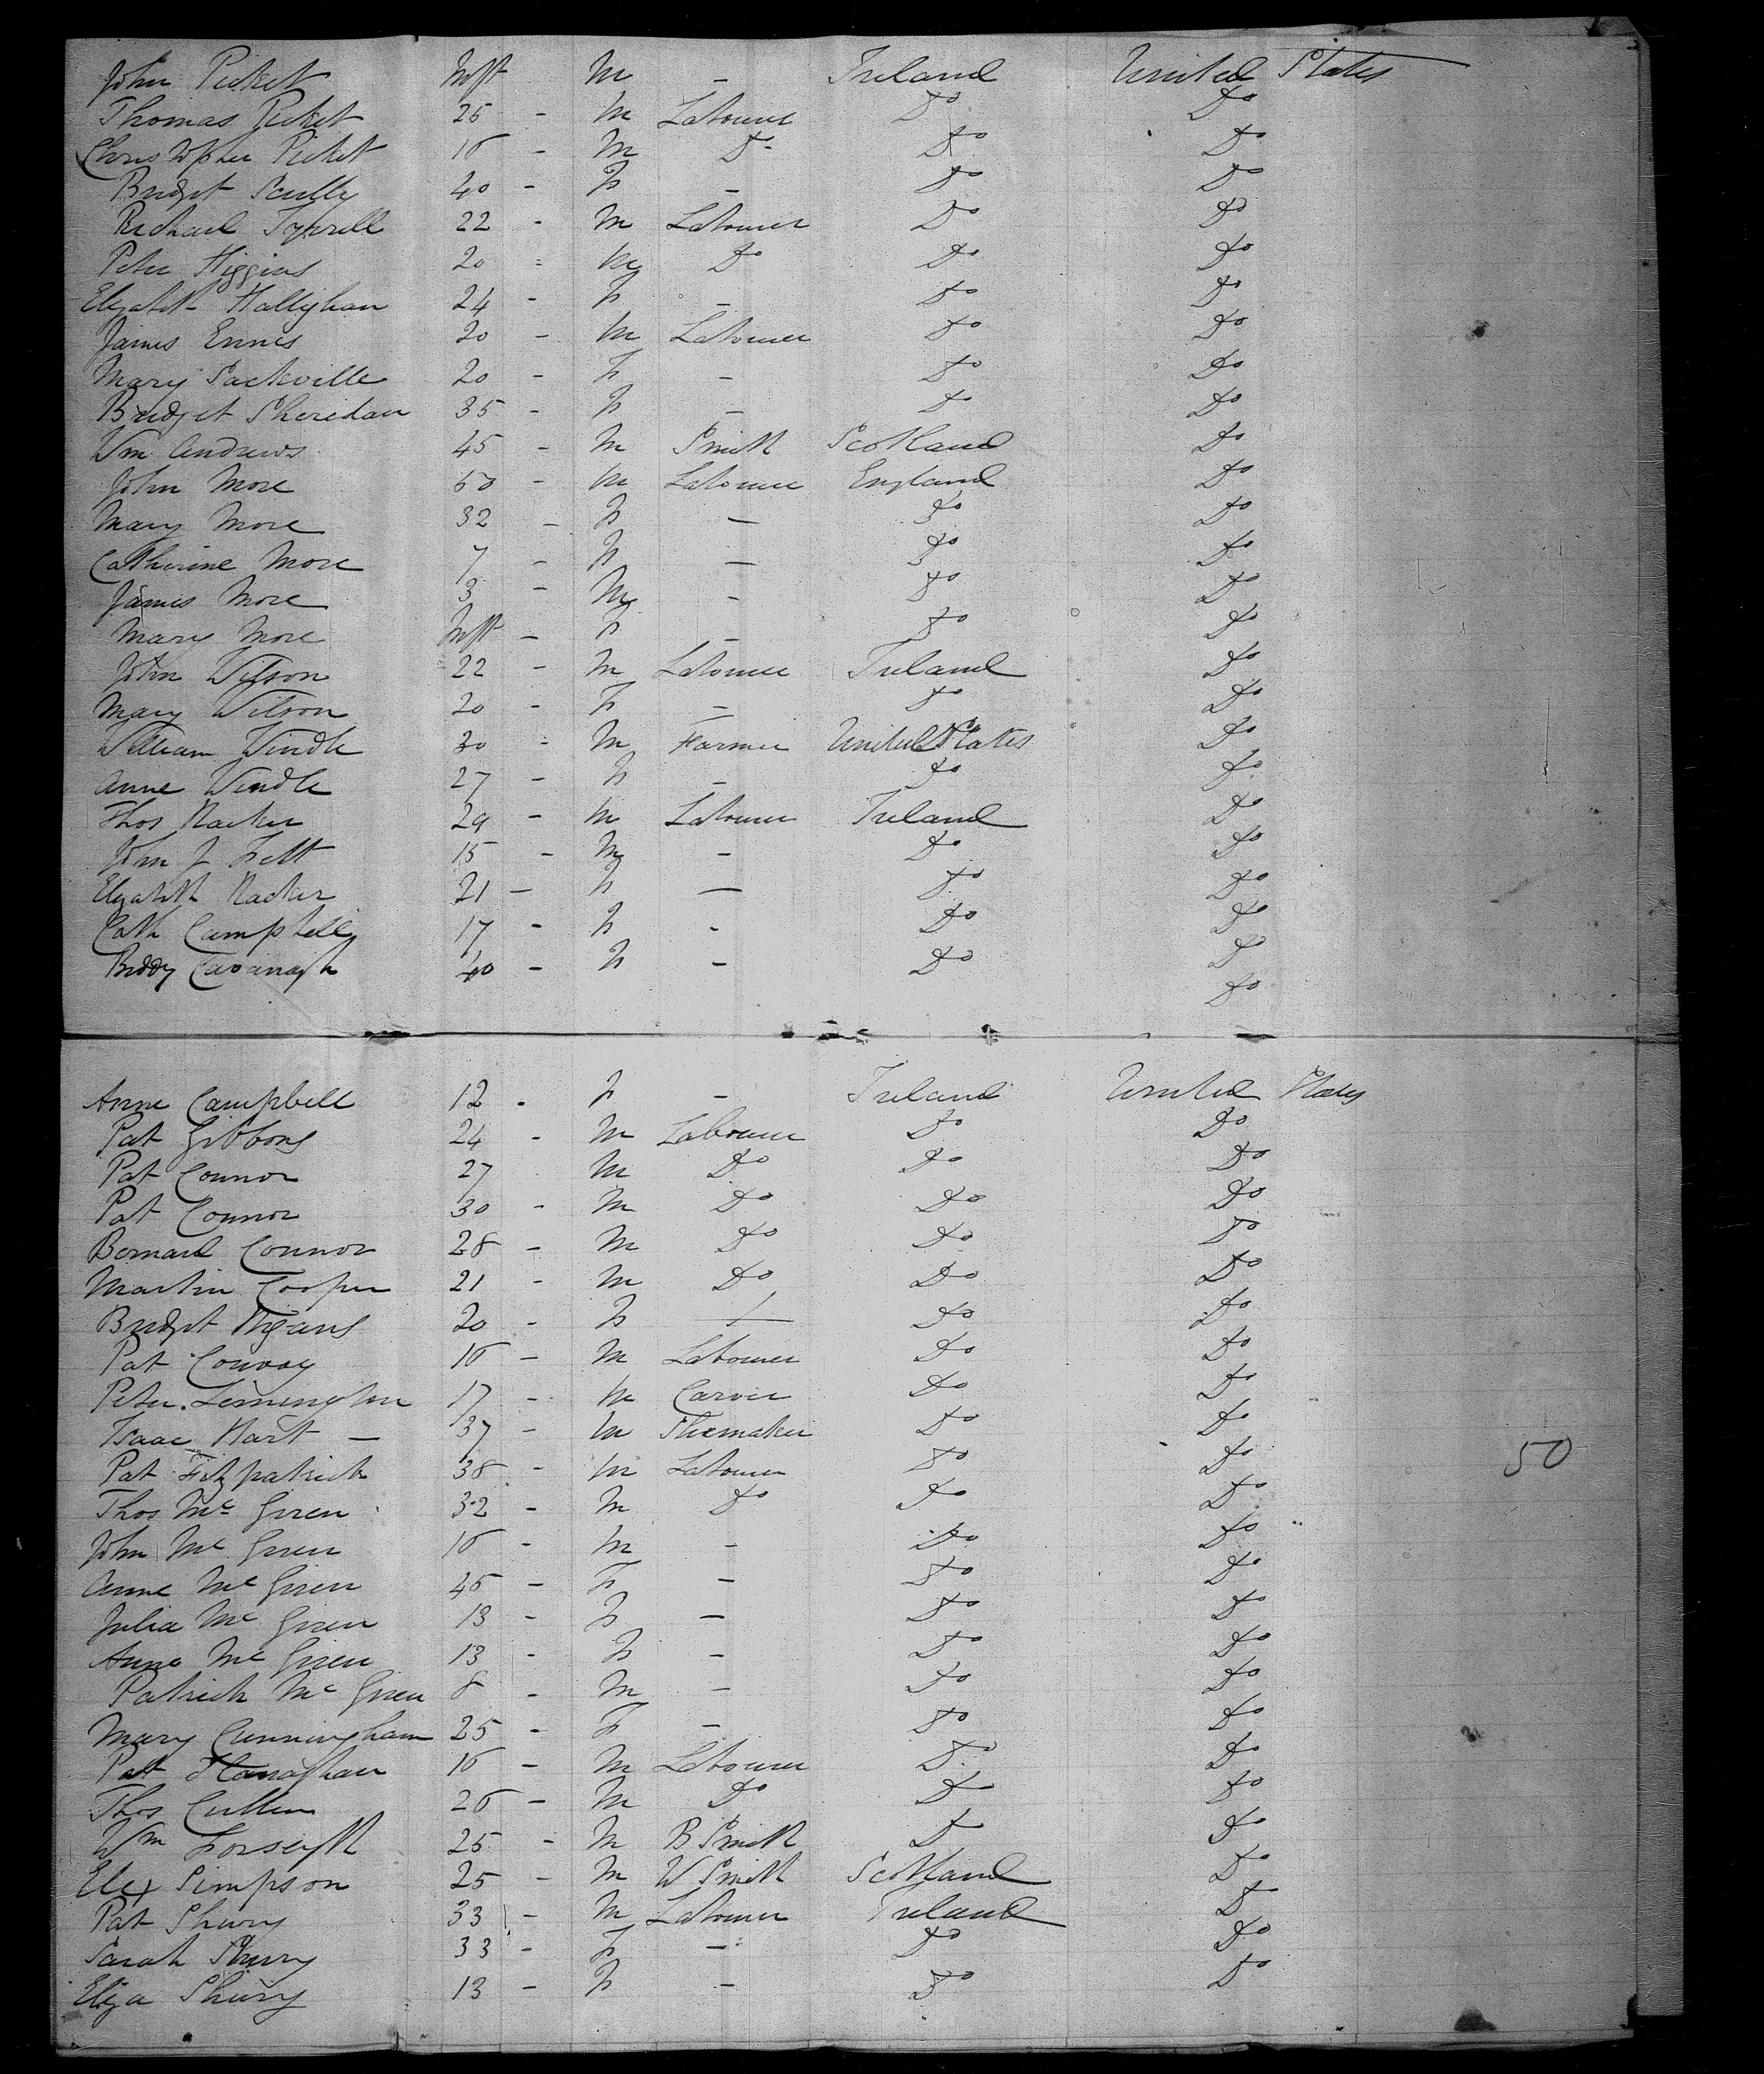 John Picket Inft M - Ireland United States
Thomas Picket 25 - M Labourer Do Do
Christopher Picket 16 - M Do Do Do
Bridget Scully 40 - F - Do Do
Richard Tyrrell 22 - M Labourer Do Do
Peter Higgins 20 - M Do Do Do
Elizabeth Hallighan 24 - F - Do Do
James Ennis 20 - M Labourer Do Do
Mary Sackville 20 - F - Do Do
Bridget Sheridan 35 - F - Do Do
Wm Andrews 45 - M Smith Scotland Do
John More 50 - M Labourer England Do
Mary More 32 - F - Do Do
Catherine More 7 - F - Do Do
James More 3 - M - Do Do
Mary More Inft - F - Do Do
John Wilson 22 - M Labourer Ireland Do
Mary Wilson 20 - F - Do Do
William Windle 30 - M Farmer United States Do
Anne Windle 27 - F - Do Do
Thos 29 - M Labourer Ireland Do
John J Felt 15 - M - Do Do
Elizabeth 21 - F - Do Do
Cath Campbell 17 - F - Do Do
Biddy Cavanagh 40 - F - Do Do
Do
Anne Campbell 12 - F - Ireland United States
Pat Gibbons 24 - M Labourer Do Do
Pat Connor 27 M Do Do Do
Pat Connor 30 - M Do Do Do
Bernard Connor 28 - M Do Do Do
Martin Cooper 21 - M Do Do Do
Bridget 20 - F - Do Do
Pat Conway 16 - M Labourer Do Do
Peter Lemington 17 - M Carver Do Do
Isaac Hart - 37 - M Shoemaker Do Do
Pat Fitzpatrick 38 - M Labourer Do Do
50
Thos Mc Giren 32 - M Do Do Do
John Mc Giren 16 - M - Do Do
Anne Mc Giren 45 - F - Do Do
Julia Mc Giren 13 - F - Do Do
Anne Mc Giren 13 - F - Do Do
Patrick Mc Giren 8 - M - Do Do
Mary Cunningham 25 - F - Do Do
Pat 16 - M Labourer Do Do
Thos Cullen 26 - M Do Do Do
Wm Forsyth 25 - M B Smith Do Do
Elex Simpson 25 - M W Smith Scotland Do
Pat Shury 33 - M Labourer Ireland Do
Sarah Shury 33 - F - Do Do
Eliza Shury 13 - F - Do Do